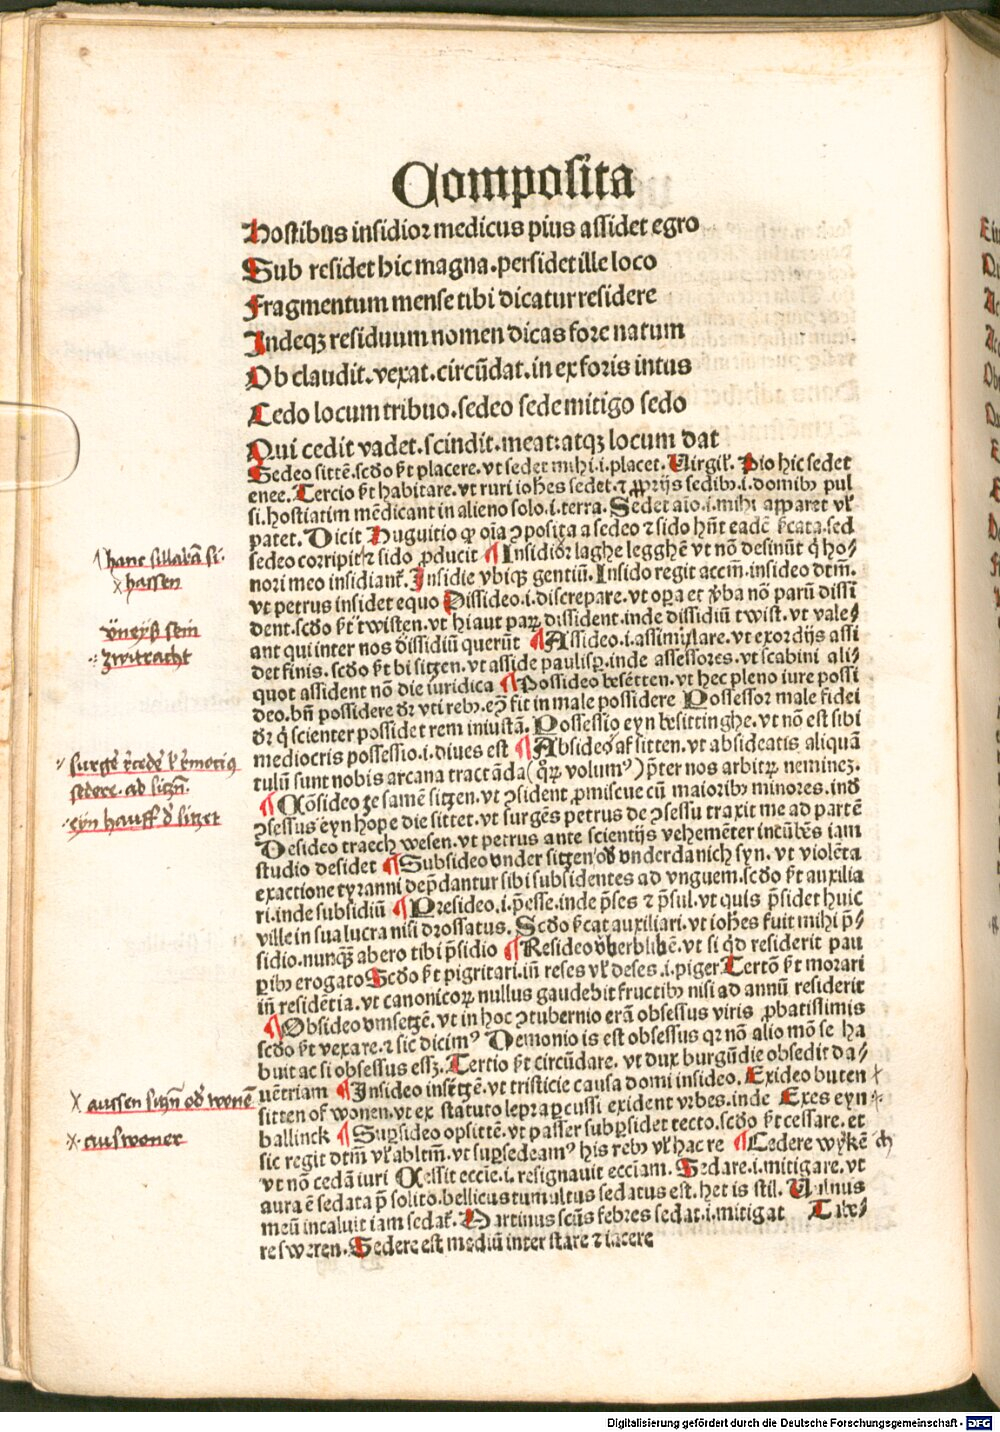 Composita
Hostibus insidior medicus pius assidet egro
Sub residet hic magna.persidet ille loco
Fragmentum mense tibi dicatur residere
Indeqꝫ residuum nomen dicas fore natum
Ob claudit.vexat.circūdat.in ex foris intus
Cedo locum tribuo.sedeo sede mitigo sedo
Qui cedit vadet.scindit.meat:atqꝫ locum dat
Sedeo sittē.scđo ẜt placere.vt sedet mihi.i.placet.Virgiƚ.Dio hic sedet
enee.Tercio ẜt habitare.vt ruri ioħes sedet.⁊ ꝓprijs sedibꝫ.i.domibꝫ pul
si.hostiatim mēdicant in alieno solo.i.terra.Sedet aīo.i.mihi apparet vƚ
patet.Dicit Huguitio ꝙ oīa ꝯposita a sedeo ⁊ sido hn̄t eadē ẜcata.sed
sedeo corripit̉ ⁊ sido ꝓducit ¶Insidior laghe legghē vt nō desinūt q̇ ho⸗
nori meo insidiant̉.Insidie vbiqꝫ gentiū.Insido regit accm̄.insideo dtm̄.
vt petrus insidet equo Dissideo.i.discrepare.vt oꝑa et ꝟba nō parū dissi
dent.scđo ẜt twisten.vt hiaut paꝝ dissident.inde dissidiū twist.vt vale⸗
ant qui inter nos dissidiū querūt ¶Assideo.i.assimilare.vt exordijs assi
det finis.scđo ẜt bi sitzen.vt asside paulisꝑ.inde assessores.vt scabini ali⸗
quot assident nō die iuridica ¶Possideo besētten.vt hec pleno iure possi
deo.bn̄ possidere đr vti rebꝫ.eꝯ̄ fit in male possidere Possessor male fidei
đr q̇ scienter possidet rem iniustā.Possessio eyn besittinghe.vt nō est sibi
mediocris possessio.i.diues est ¶Absideo af sitten.vt absideatis aliquā
tulū sunt nobis arcana tractāda(qōꝝ volumꝰ)p̄ter nos arbitrꝝ neminez.
¶Cōsideo ze samē sitzen.vt ꝯsident ꝓmiscue cū maioribꝫ minores.inđ
ꝯsessus eyn hope die sittet.vt surgēs petrus de ꝯsessu traxit me ad partē
Desideo traech wesen.vt petrus ante scientijs vehemēter incūbēs iam
studio desidet ¶Subsideo vnder sitzen ođ vnderdanich syn.vt violēta
exactione tyranni dep̄dantur sibi subsidentes ad vnguem.scđo ẜt auxilia
ri.inde subsidiū ¶Presideo.i.p̄esse.inde p̄ses ⁊ p̄sul.vt quis p̄sidet huic
ville in sua lucra nisi drossatus.Scđo ẜcat auxiliari.vt ioħes fuit mihi p̄⸗
sidio.nunqꝫ abero tibi p̄sidio ¶Resideo ōberblibē.vt si q̇d residerit pau
ꝑibꝫ erogato Scđo ẜt pigritari.in̄ reses vƚ deses.i.piger Tertō ẜt morari
in̄ residētia.vt canonicoꝝ nullus gaudebit fructibꝫ nisi ad annū residerit
¶Obsideo vmsetzē.vt in hoc ꝯtubernio erā obsessus viris ꝓbatissimis
scđo ẜt vexare.⁊ sic dicimꝰ Demonio is est obsessus qꝛ nō alio mō se ha
buit ac si obsessus essꝫ.Tercio ẜt circūdare.vt dux burgūdie obsedit da⸗
uētriam ¶Insideo insētzē.vt tristicie causa domi insideo.Exideo buten
sitten of wonen.vt ex statuto lepra ꝑcussi exident vrbes.inde Exes eyn
ballinck ¶Supsideo opsittē.vt passer subꝑsidet tecto.scđo ẜt cessare.et
sic regit dtm̄ vƚ abltm̄.vt suꝑsedeamꝰ his rebꝫ vƚ hac re ¶Cedere wykē
vt nō cedā iuri Cessit eccīe.i.resignauit ecciam.Sedare.i.mitigare.vt
aura ē sedata p̄ solito.bellicus tumultus sedatus est.het is stil.Vulnus
meū incaluit iam sedat̉.Martinus scūs febres sedat.i.mitigat
re sweren.Sedere est mediū inter stare ⁊ iacere
hanc sillabā si.
hassen
vneyß sein
zwitracht
sedere.ad sitzn̄.
eyn hauff đ sitzet
aussen sitzn̄ ođ wonē
auswoner
Digitalisierung gefördert durch die Deutsche Forschungsgemeinschaft - DFG